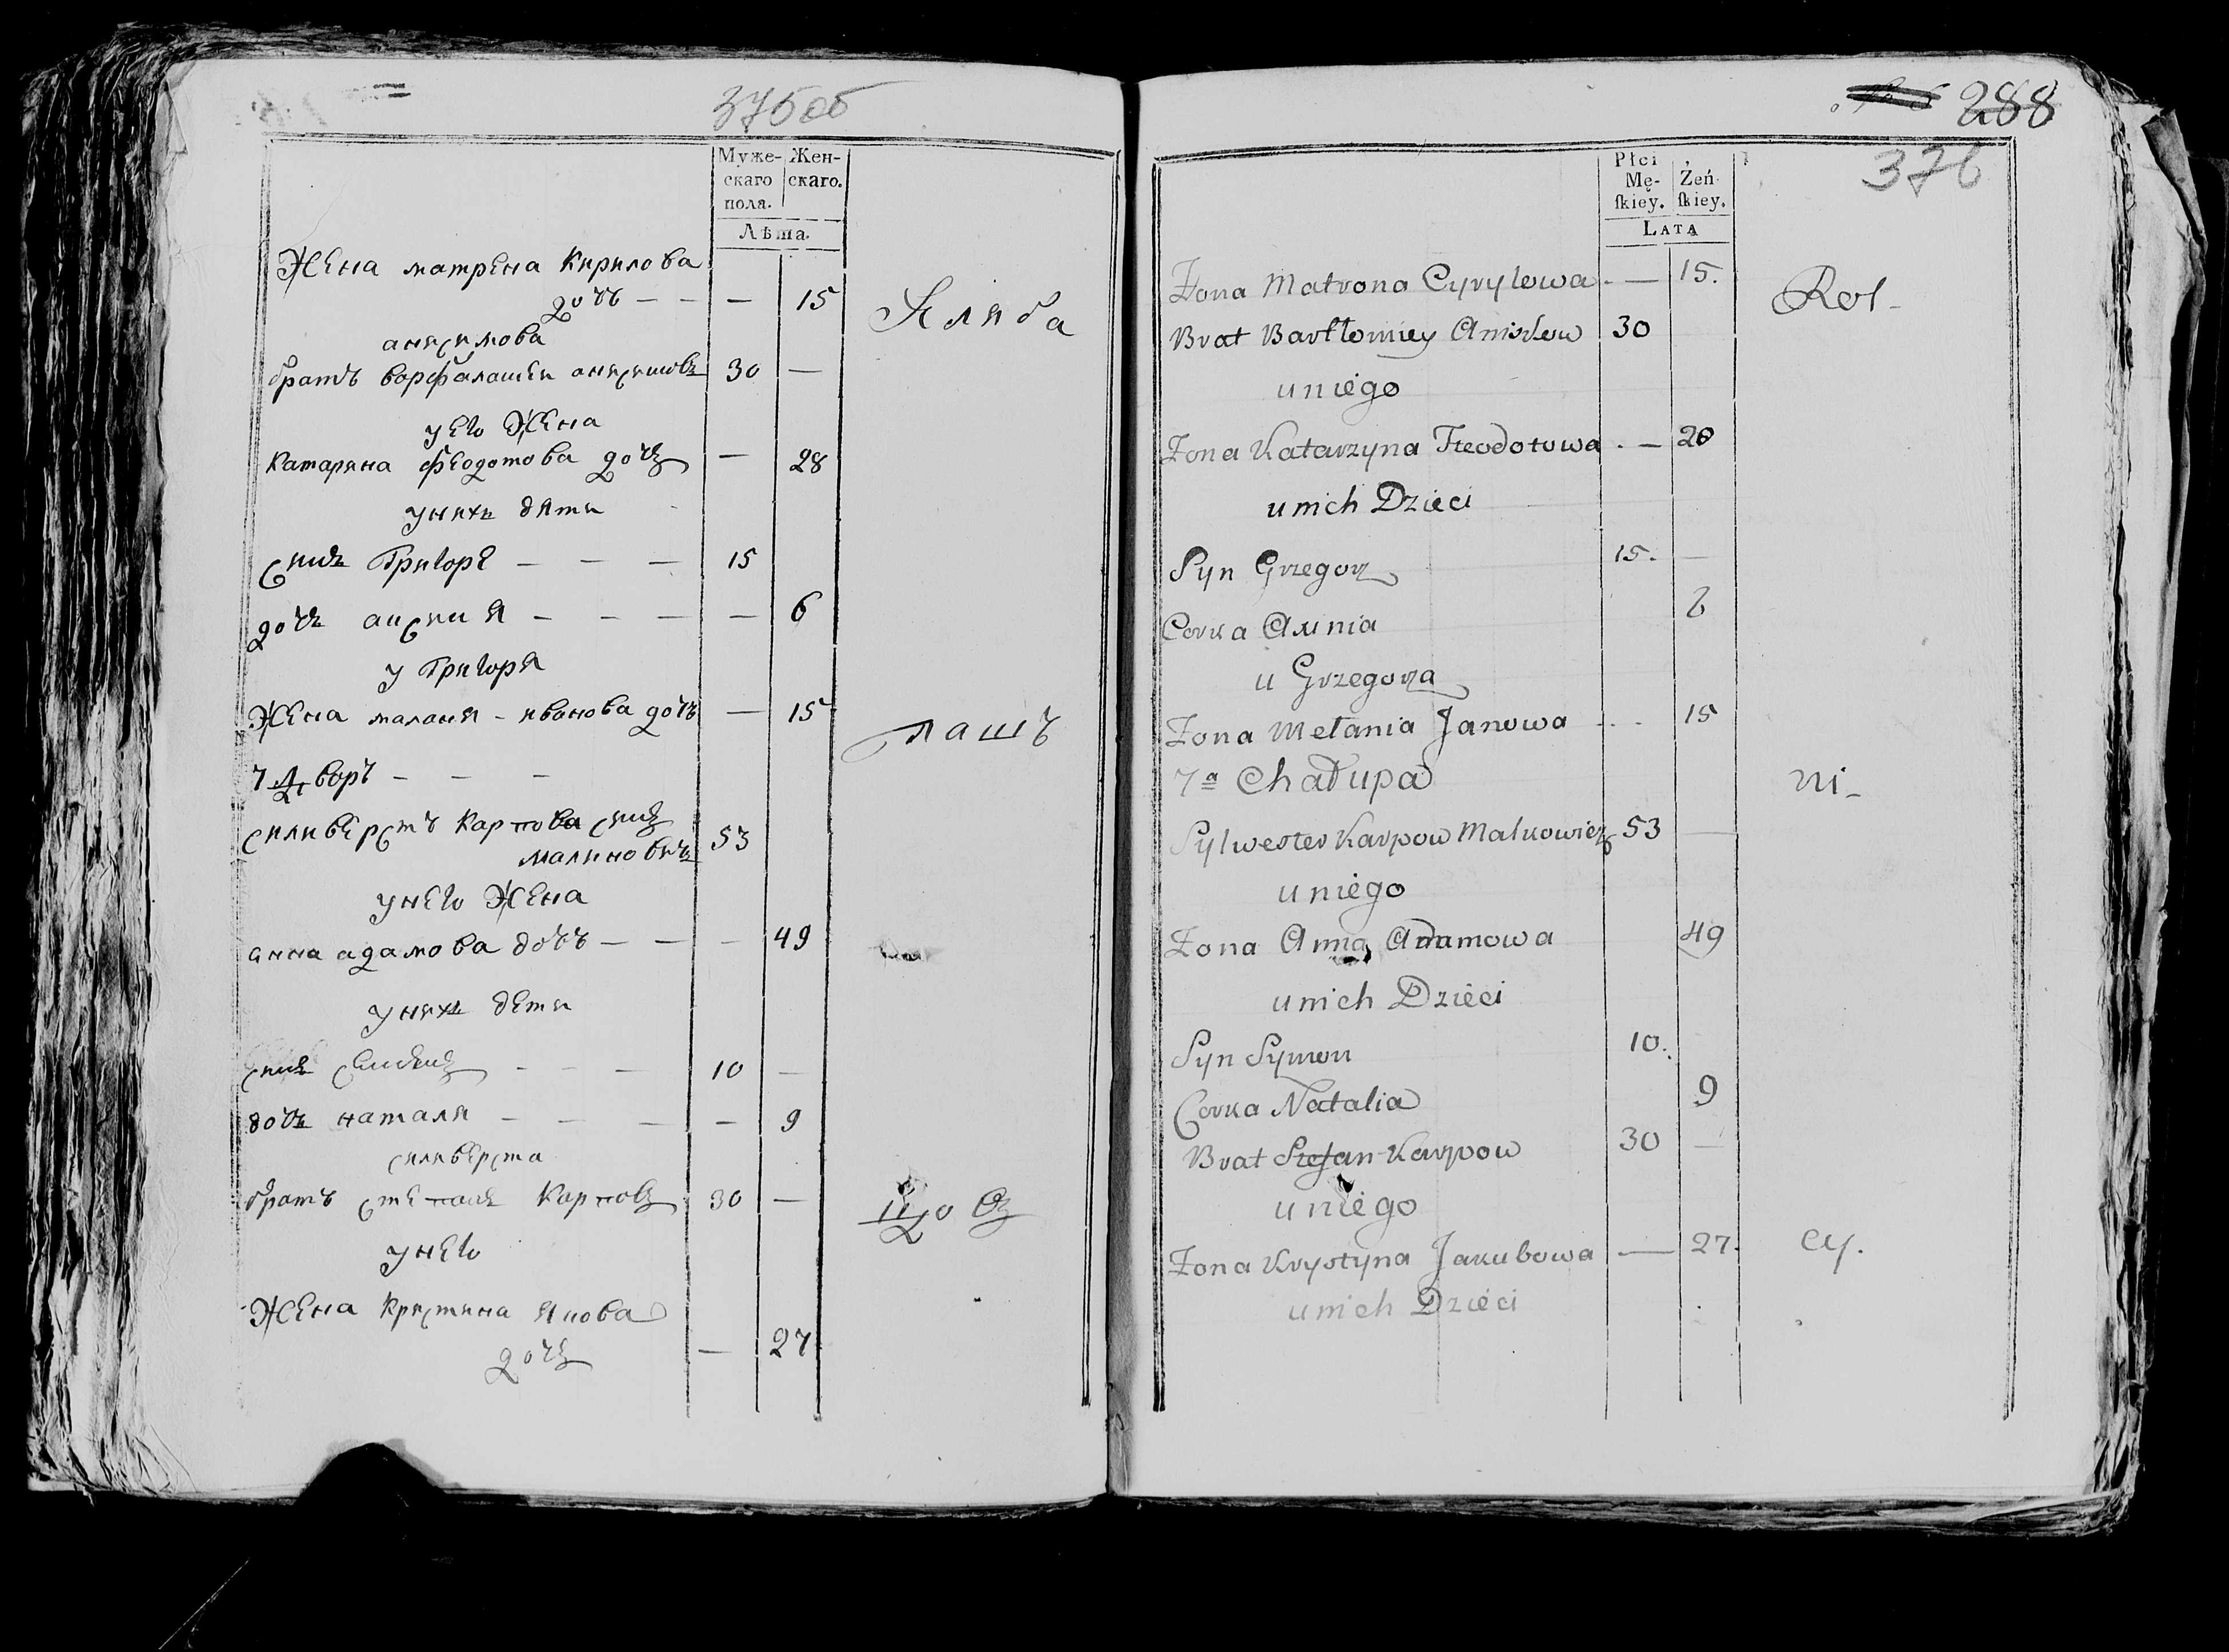 375об
Муже-
скаго
пола.
Жен-
скаго.
Лѣта.
Жена матрена Кирилова
дочь — — — 15
анисимова
братъ варфаламеи анисимовъ 30 —
у его Жена
катарина феодотова дочъ — 28
унихъ дѣти
синъ Григоре — — — 15
дочъ — — — — 6
у Григоря
Жена маланя - иванова дочъ — 15
7 Дворъ — — —
силивестъ Карпова синъ
малиновичъ 53
унего Жена
анна адамова дочъ — — — 49
унихъ дети
синъ — — — 10 —
дочъ наталя — — — — 9
силиверста
братъ степанъ Карповъ 30 —
унего
Жена Кристина
дочъ — 27
лашъ
288
376
Płci
Mę-
ſkiey.
Żeń
ſkiey.
LATA
Żona Matrona Cyrylowa — 15.
Rol-
Brat Bartłomiey 30
u niego
Żona Katarzyna Fteodotowa — 28
u nich Dzieci
Syn Grzegorz 15. —
Corka 6
u Grzegorza
Żona Melania Janowa 15
7a Chałupa
ni-
Sylwester Karpow Malkowicz 53 —
u niego
Żona Anna Adamowa 49
u nich Dzieci
Syn Symon 10.
Corka Natalia 9
Brat Stefan Karpow 30 —
u niego
Żona Krystyna Jakubowa — 27.
cy.
u nich Dzieci